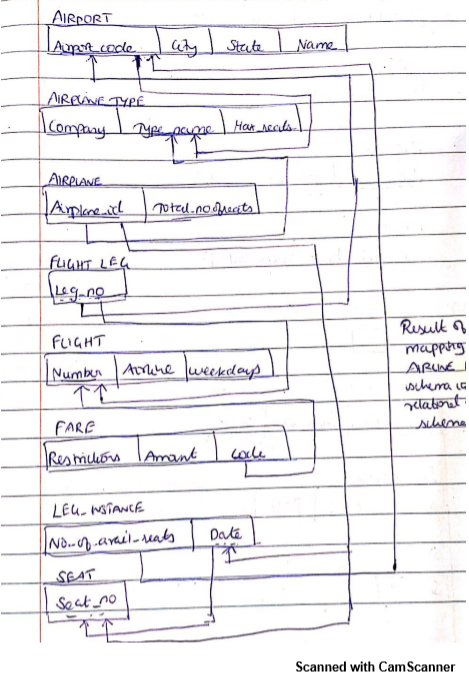 AIRPORT
Airport_code City State Name
AIRPLANE_TYPE
Company Type_name Max_seats
AIRPLANE
Airplane_id Total_no_of seats
FLIGHT LEG
Leg_no
FLIGHT
Number Airline weekdays
FARE
Restrictions Amount code
LEG_INSTANCE
No_of_avail_seats Date
SEAT
Seat_no
Result of
mapping
AIRLINE
schema
relational
schema
Scanned with CamScanner